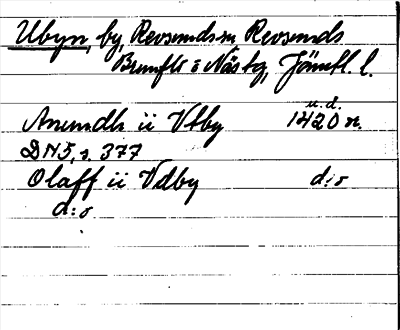 Ubyn, by, Revsunds sn Revsunds
Brunflo o Näs tg, Jämtl. l.
u. d.
Anundh ii Vtby 1420 n.
DN5, s. 377
Olaff ii Vdby d:o
d:o